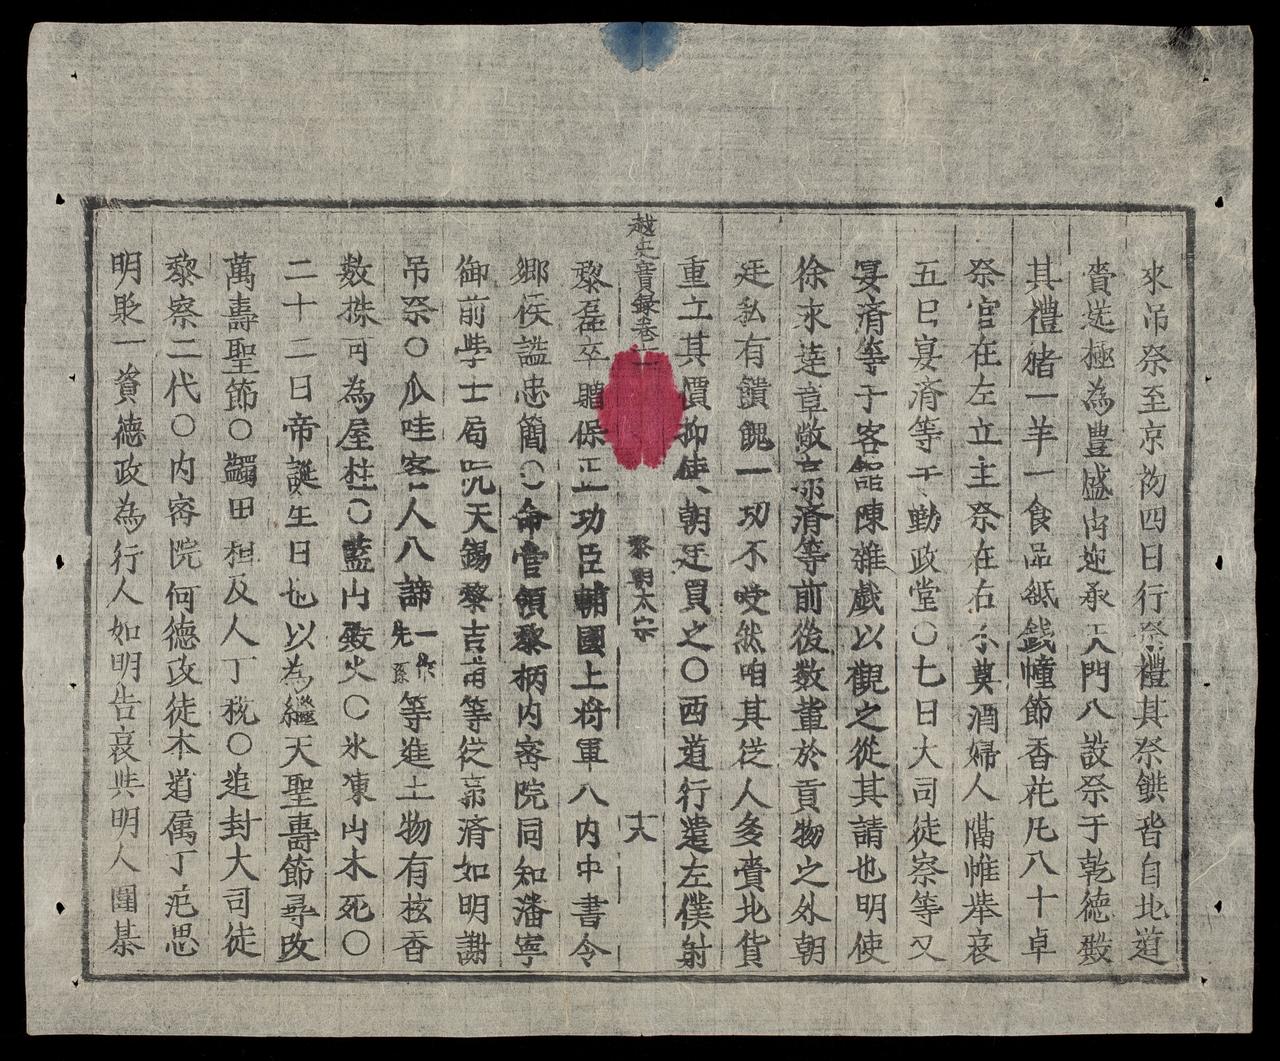 來吊祭至京初四日行祭禮其祭饌皆自北道
賫送極為豊盛由迎承天門入設祭于乾德殿
其禮猪一羊一食品紙銭幢節香花凡八十卓
祭官在左立主祭在右亦奠酒婦人隔帷舉哀
五日宴済等于勤政堂〇七日大司徒察等又
宴済等于客館陳雜戲以觀之從其請也明使
徐永逹章敞郭済等前後数輩於貢物之外朝
廷私有饋餽一切不受然咱其従人多賫北貨
重立其價抑使朝廷買之〇西道行遣左僕射
越史實録卷十一 黎朝太宗 十八
黎磊卒贈保正功臣輔國上将軍入内中書令
郷侯謚忠簡〇命管領黎柄内密院同知潘寧
御前學士局阮天錫黎吉甫等従郭済如明謝
吊祭〇爪哇客人八諦一作先孫等進土物有核香
数株可為屋柱〇藍山殿火〇氷凍山木死〇
二十二日帝誕生日也以為繼天聖壽節尋改
萬壽聖節〇蠲田租及人丁税〇追封大司徒
黎察二代〇内密院何德改徒本道属丁范思
明貶一資德政為行人如明告哀與明人圍棊